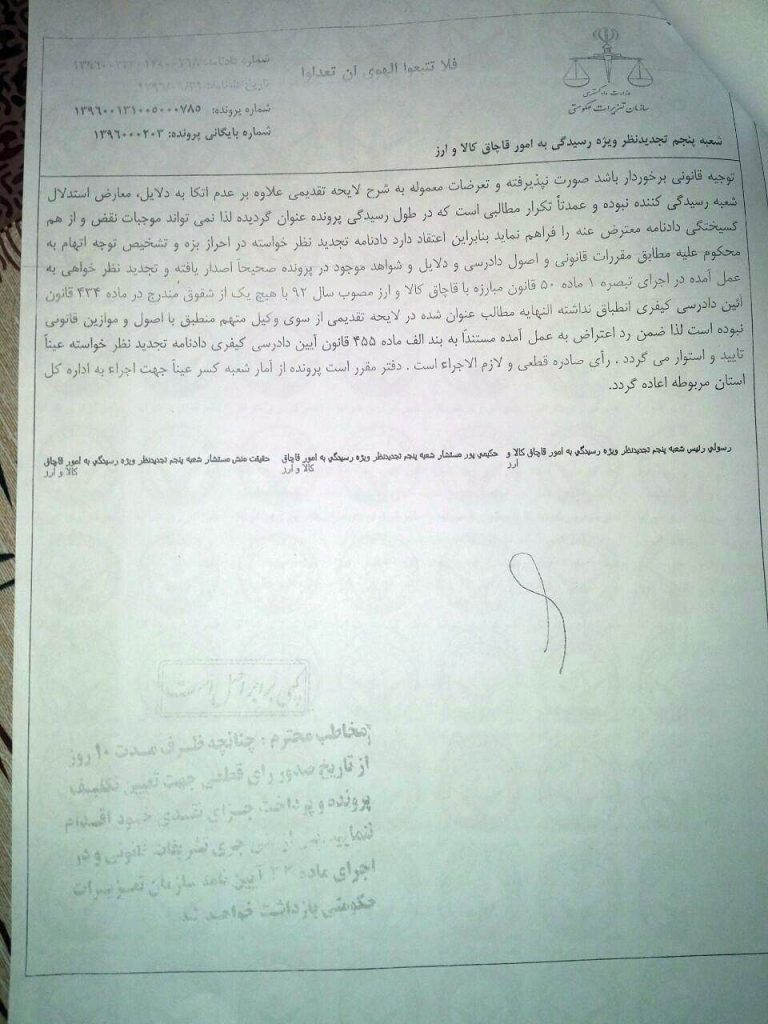 فلا تتبعوا الهوی ان تعدلوا
وزارت دادگستری
سازمان تعزیرات حکومتی
شماره دادنامه:
تاریخ دادنامه:
شماره پرونده: ۱۳۹۶۰۰۱۳۱۰۰۵۰۰۰۷۸۵
شماره بایگانی پرونده: ۱۳۹۶۰۰۰۲۰۳
شعبه پنجم تجدیدنظر ویژه رسیدگی به امور قاچاق کالا و ارز
توجیه قانونی برخوردار باشد صورت نپذیرفته و تعرضات معموله به شرح لایحه تقدیمی علاوه بر عدم اتکا به دلایل، معارض استدلال
شعبه رسیدگی کننده نبوده و عمدتاً تکرار مطالبی است که در طول رسیدگی پرونده عنوان گردیده لذا نمی تواند موجبات نقض و از هم
گسیختگی دادنامه معترض عنه را فراهم نماید بنابراین اعتقاد دارد دادنامه تجدید نظر خواسته در احراز بزه و تشخیص توجه اتهام به
محکوم علیه مطابق مقررات قانونی و اصول دادرسی و دلایل و شواهد موجود در پرونده صحیحاً اصدار یافته و تجدید نظر خواهی به
عمل آمده در اجرای تبصره ۱ ماده ۵۰ قانون مبارزه با قاچاق کالا و ارز مصوب سال ۹۲ با هیچ یک از شقوق مندرج در ماده ۴۳۴ قانون
آئین دادرسی کیفری انطباق نداشته النهایه مطالب عنوان شده در لایحه تقدیمی از سوی وکیل متهم منطبق با اصول و موازین قانونی
نبوده است لذا ضمن رد اعتراض به عمل آمده مستنداً به بند الف ماده ۴۵۵ قانون آیین دادرسی کیفری دادنامه تجدید نظر خواسته عیناً
تایید و استوار می گردد . رأی صادره قطعی و لازم الاجراء است . دفتر مقرر است پرونده از آمار شعبه کسر عیناً جهت اجراء به اداره کل
استان مربوطه اعاده گردد.
رسولی رئیس شعبه پنجم تجدیدنظر ویژه رسیدگی به امور قاچاق کالا و
ارز
حکیمی پور مستشار شعبه پنجم تجدیدنظر ویژه رسیدگی به امور قاچاق
کالا و ارز
حقیقت منش مستشار شعبه پنجم تجدیدنظر ویژه رسیدگی به امور قاچاق
کالا و ارز
کپی برابر اصل است
مخاطب محترم : چنانچه ظرف مدت ۱۰ روز
از تاریخ صدور رای قطعی جهت تعیین تکلیف
پرونده و پرداخت جزای نقدی خود اقدام
ننمایید تشریفات قانونی و در
اجرای ماده آیین نامه سازمان تعزیرات
حکومتی بازداشت خواهید شد